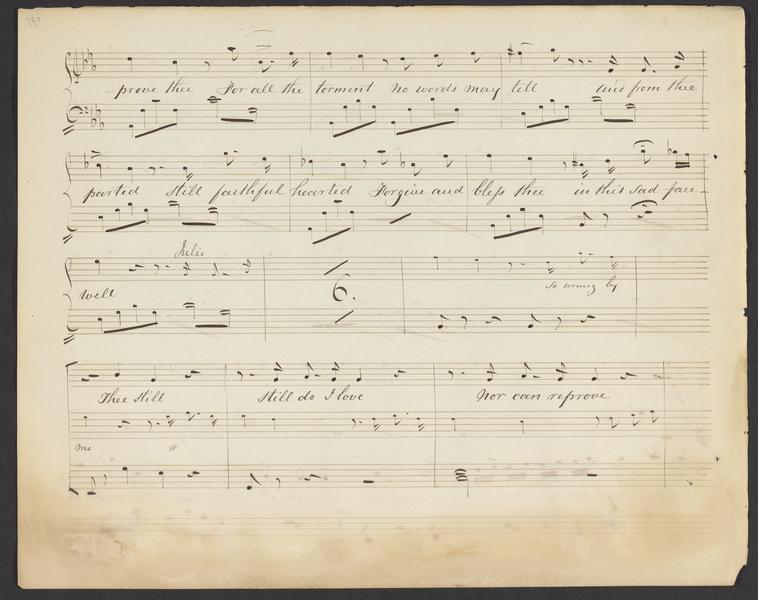 190
prove thee For all the torment No words may tell and from thee
parted still faithful hearted Forgive and bless thee in this sad fare-
Julio
well 6. so wrung by
Thee still still do I love Nor can reprove
me